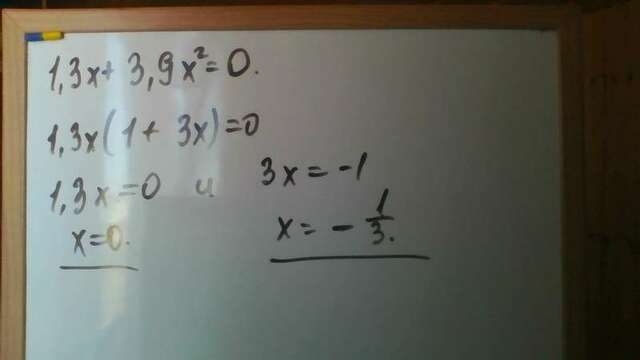 1,3x + 3,9x² = 0.
1,3x(1 + 3x) = 0
1,3x = 0 и 3x = -1
x = 0. x = - 1/3.